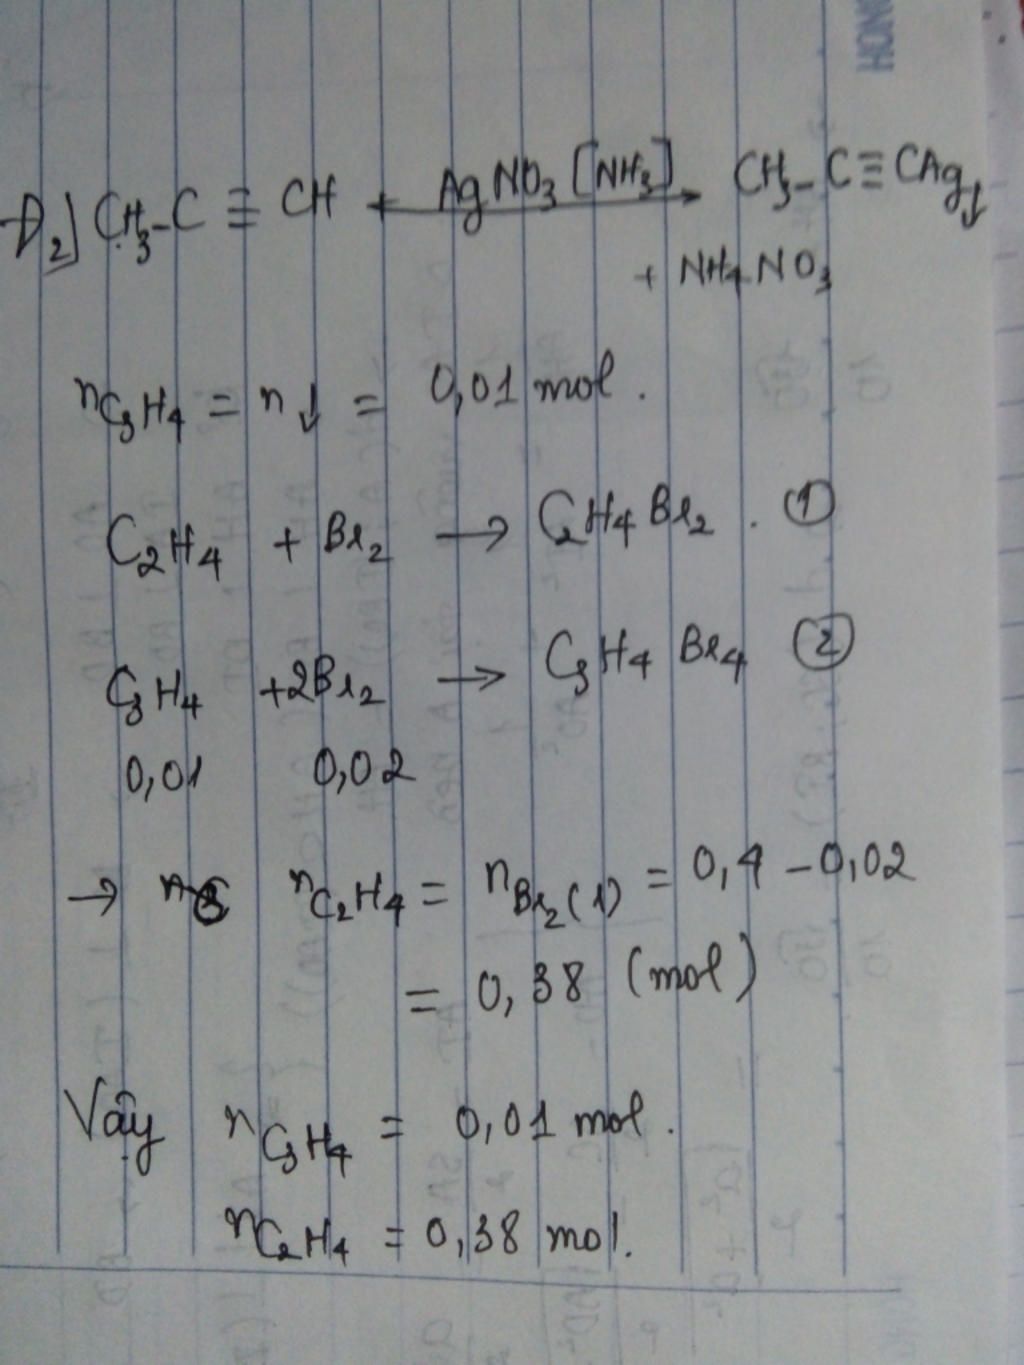 HONG
D2] CH3-C ≡ CH + AgNO3 [NH3] → CH3-C≡CAg↓
+ NH4NO3
nC3H4 = n↓ = 0,01 mol.
C2H4 + Br2 → C2H4Br2. ①
C3H4 + 2Br2 → C3H4Br4 ②
0,01 0,02
→ nC2H4 = nBr2(1) = 0,4 - 0,02
= 0,38 (mol)
Vậy nC3H4 = 0,01 mol.
nC2H4 = 0,38 mol.